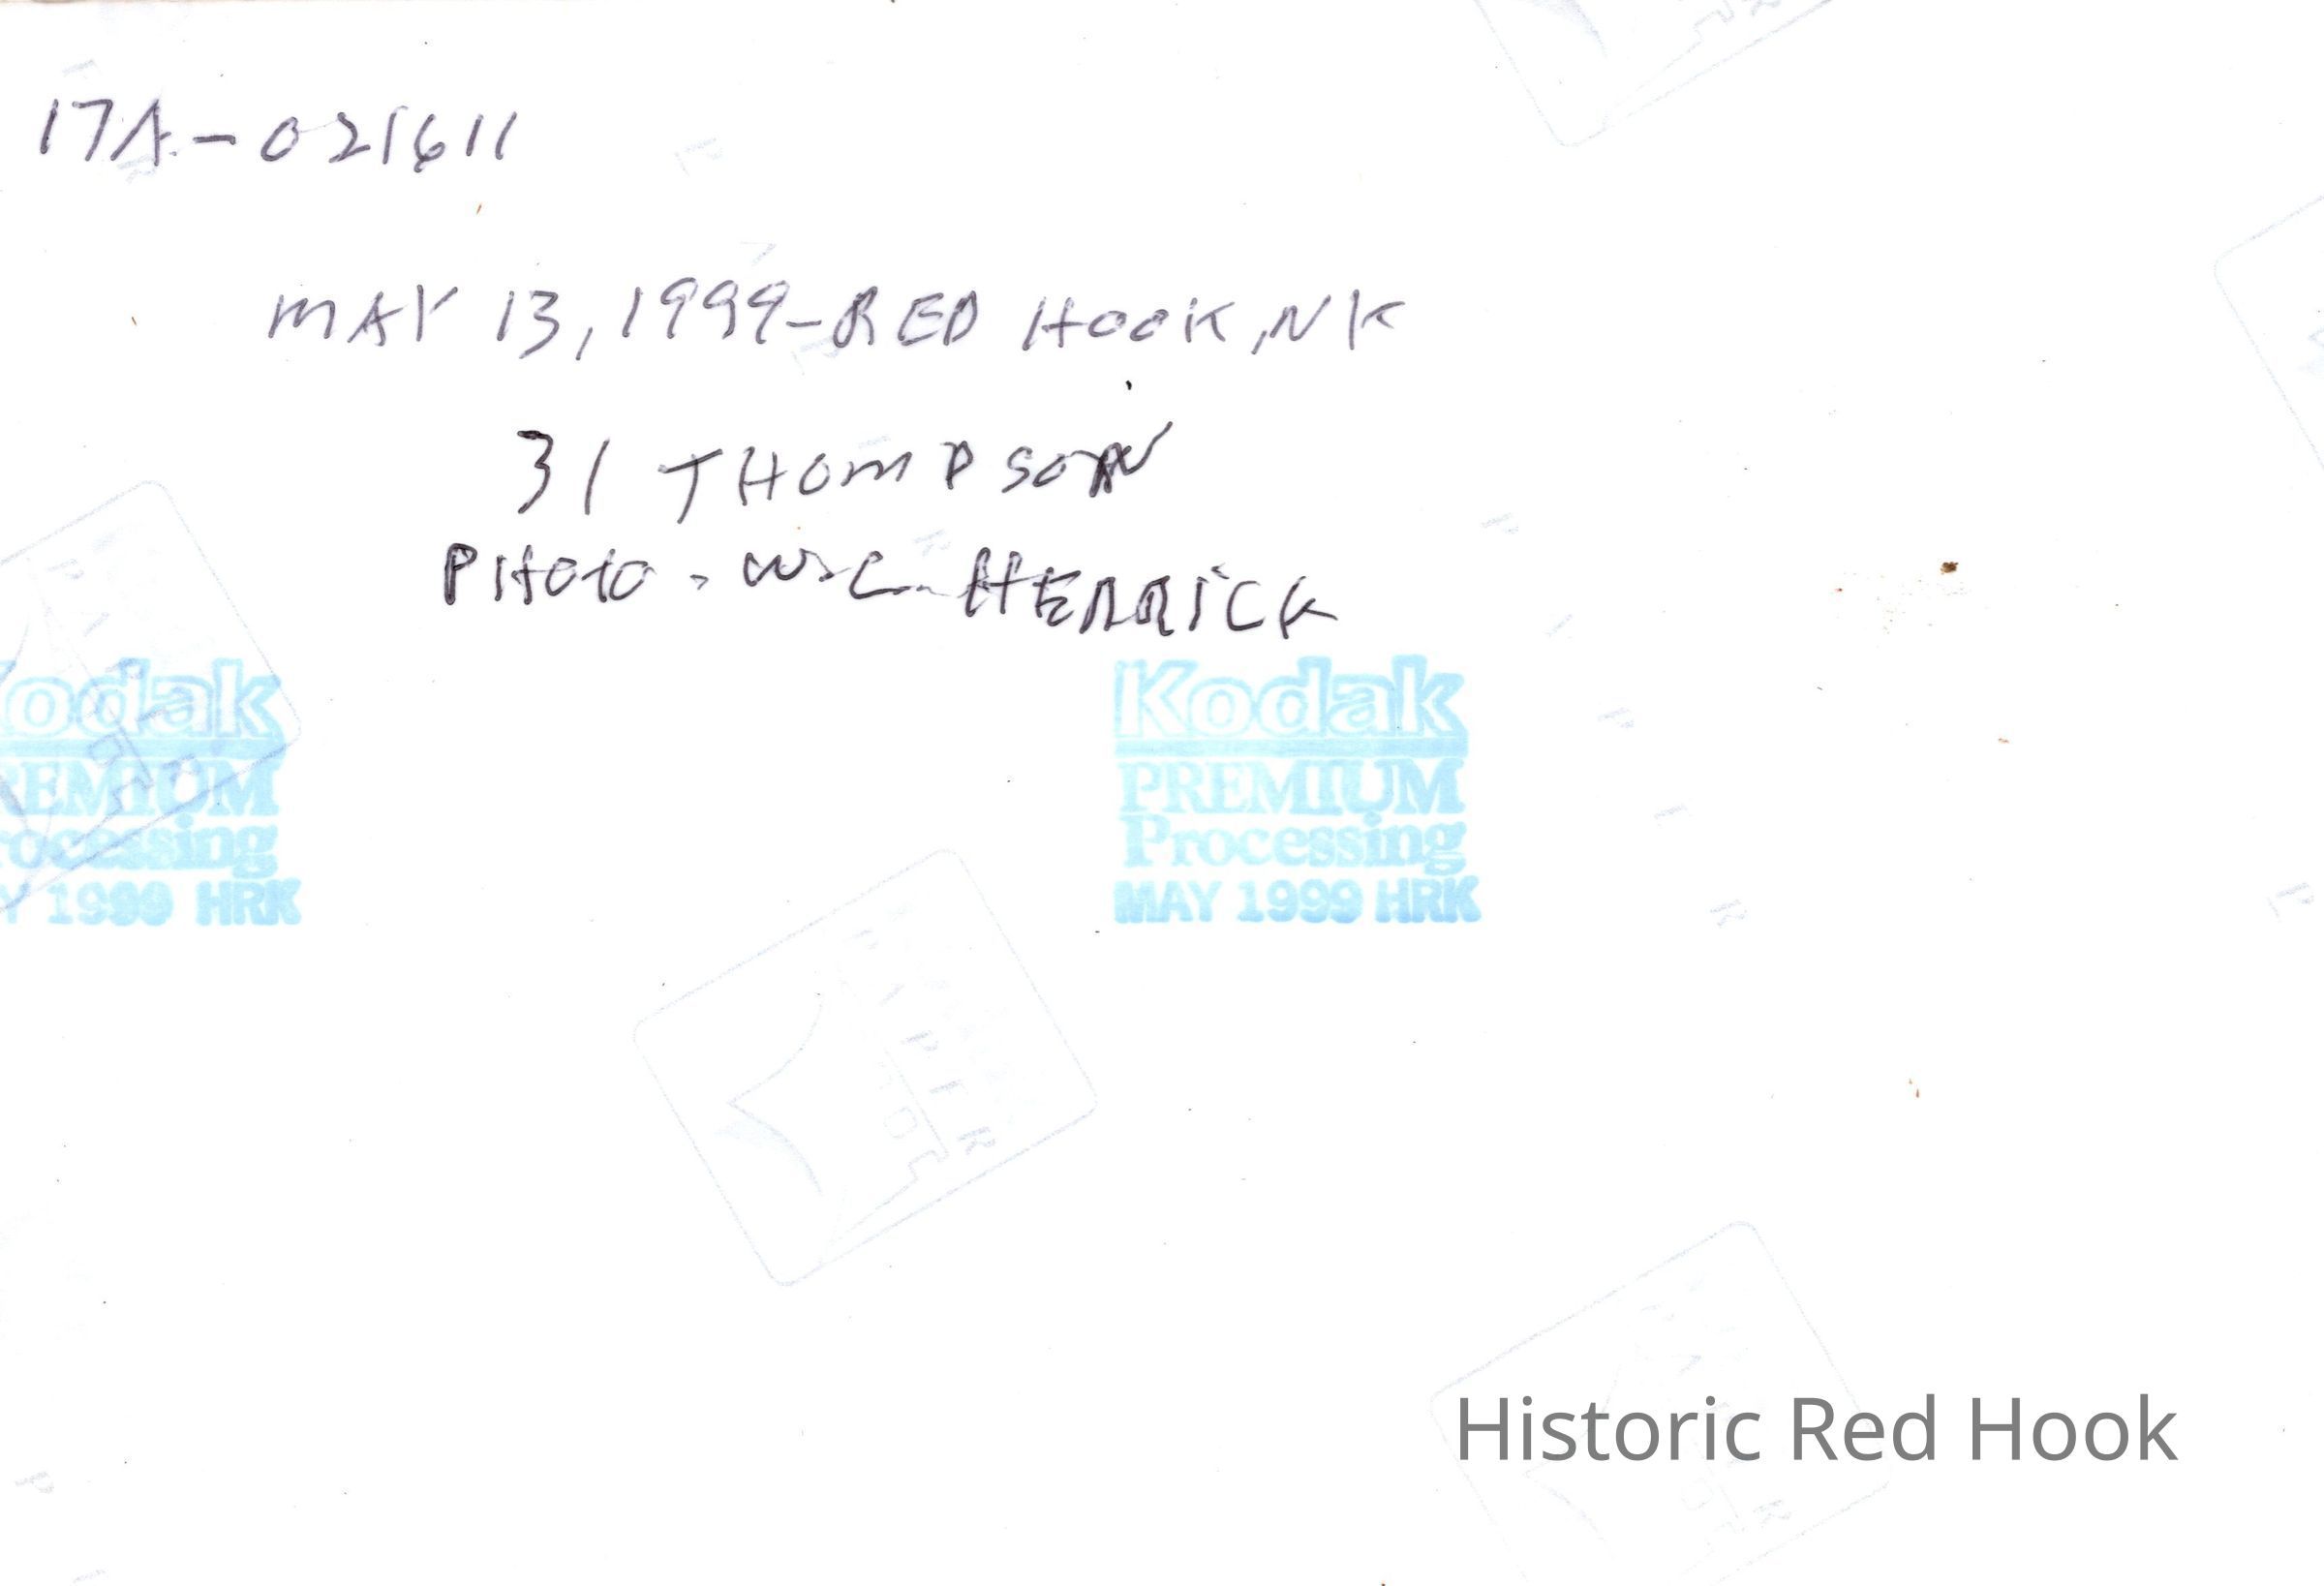 17A-021611
MAY 13, 1999-RED HOOK, NK
31 THOMPSON
PHOTO - W.C. HERRICK
Kodak
PREMIUM
Processing
MAY 1999 HRK
odak
REMIUM
rocessing
Y 1999 HRK
PAPER
Historic Red Hook